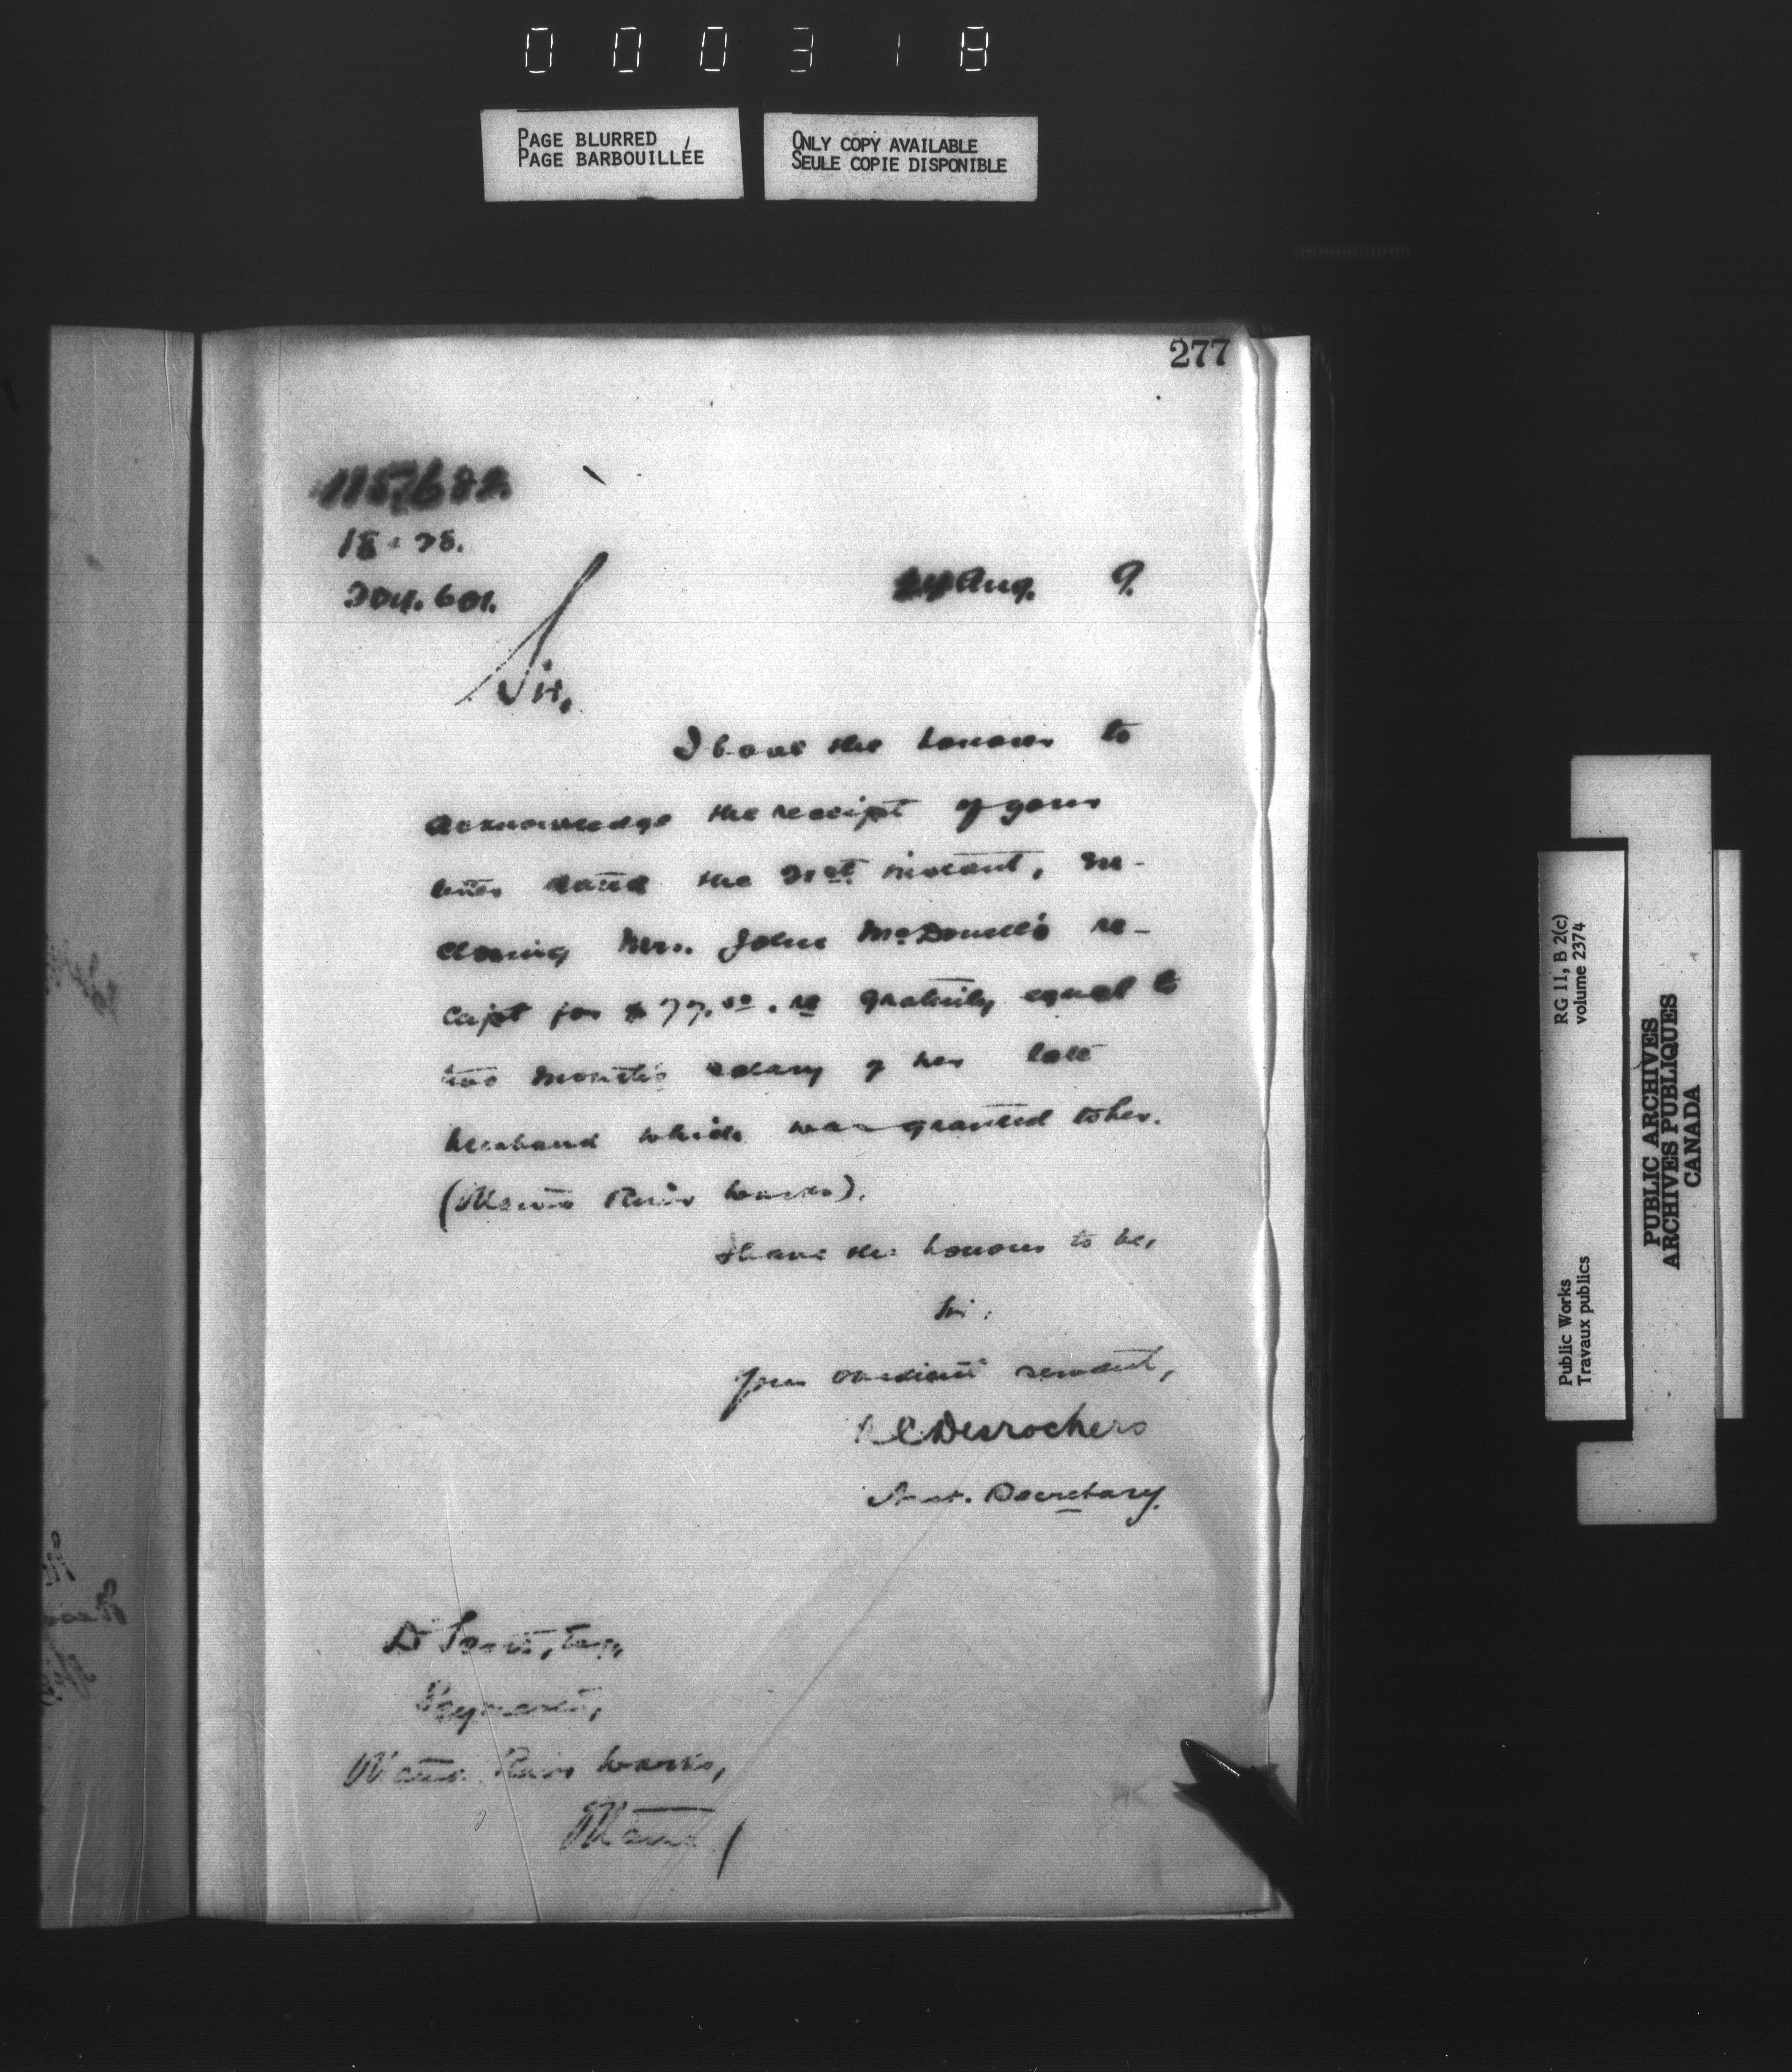 000318
PAGE BLURRED
PAGE BARBOUILLÉE
ONLY COPY AVAILABLE
SEULE COPIE DISPONIBLE
277
115,622
18 · 28.
204.601.
24 Aug. 9.
Sir,
I have the honour to
acknowledge the receipt of your
letter dated the 21st instant, en-
closing Mrs. John McDonell's re-
ceipt for $77.50. gratuity equal to
two month's salary of her late
husband which was granted to her.
(River Works).
I have the honour to be,
Sir,
Your obedient servant,
R C Desrochers
Asst. Secretary.
D Scott, Esq,
Paymaster,
River Works,
RG 11, B 2(c)
volume 2374
Public Works
Travaux publics
PUBLIC ARCHIVES
ARCHIVES PUBLIQUES
CANADA